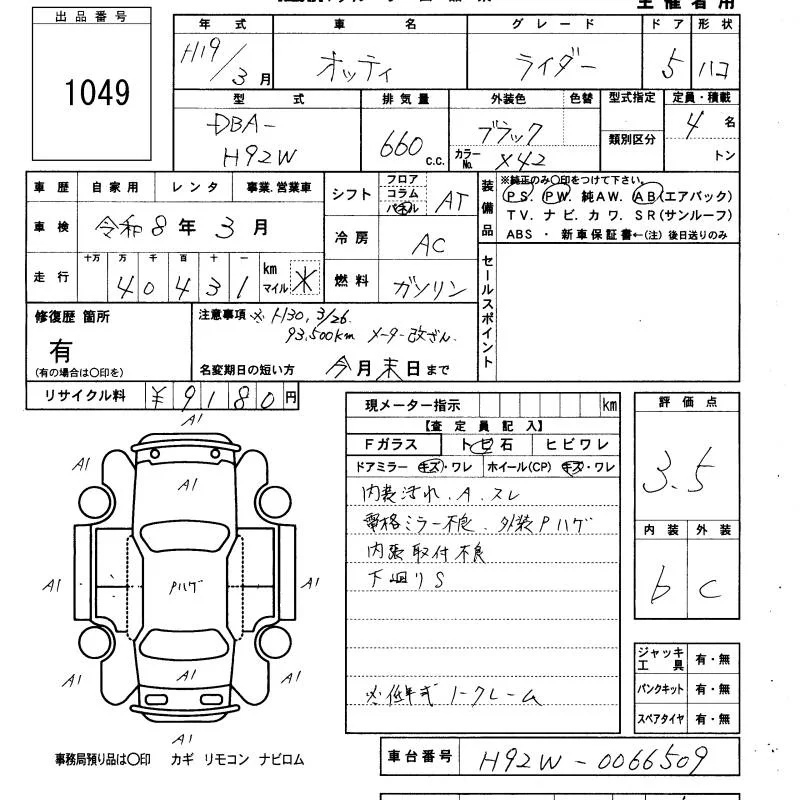 出品番号
1049
主催者用
年式 車名 グレード ドア 形状
H19/3月 オッティ ライダー 5 ハコ
型式 排気量 外装色 色替 型式指定 定員・積載
DBA-H92W 660c.c. ブラック 4名
カラーNo. X42 類別区分 トン
車歴 自家用 レンタ 事業.営業車
車検 令和8年3月
走行 十万 万 千 百 十 一 km マイル
40431 ※
シフト フロア コラム パネル AT
冷房 AC
燃料 ガソリン
装備品 ※純正のみ〇印をつけて下さい。
PS. PW. 純AW. AB(エアバック)
TV. ナビ. カワ. SR(サンルーフ)
ABS ・ 新車保証書←(注)後日送りのみ
セールスポイント
修復歴 箇所
有
(有の場合は〇印を)
注意事項 ※ H30, 3/26.
93,500km メーター改ざん.
名変期日の短い方 今月末日まで
リサイクル料 ¥9180円
現メーター指示 km
【査定員記入】
Fガラス トビ石 ヒビワレ
ドアミラー キズ・ワレ ホイール(CP) キズ・ワレ
内装汚れ.A.スレ
電格ミラー不良.外装Pハゲ
内張取付不良
下廻りS
※低年式ノークレーム
評価点
3.5
内装 外装
b C
A1
A1 A1
A1
A1 Pハゲ A1
A1
A1 A1
A1
ジャッキ工具 有・無
パンクキット 有・無
スペアタイヤ 有・無
事務局預り品は〇印 カギ リモコン ナビロム
車台番号 H92W-0066509